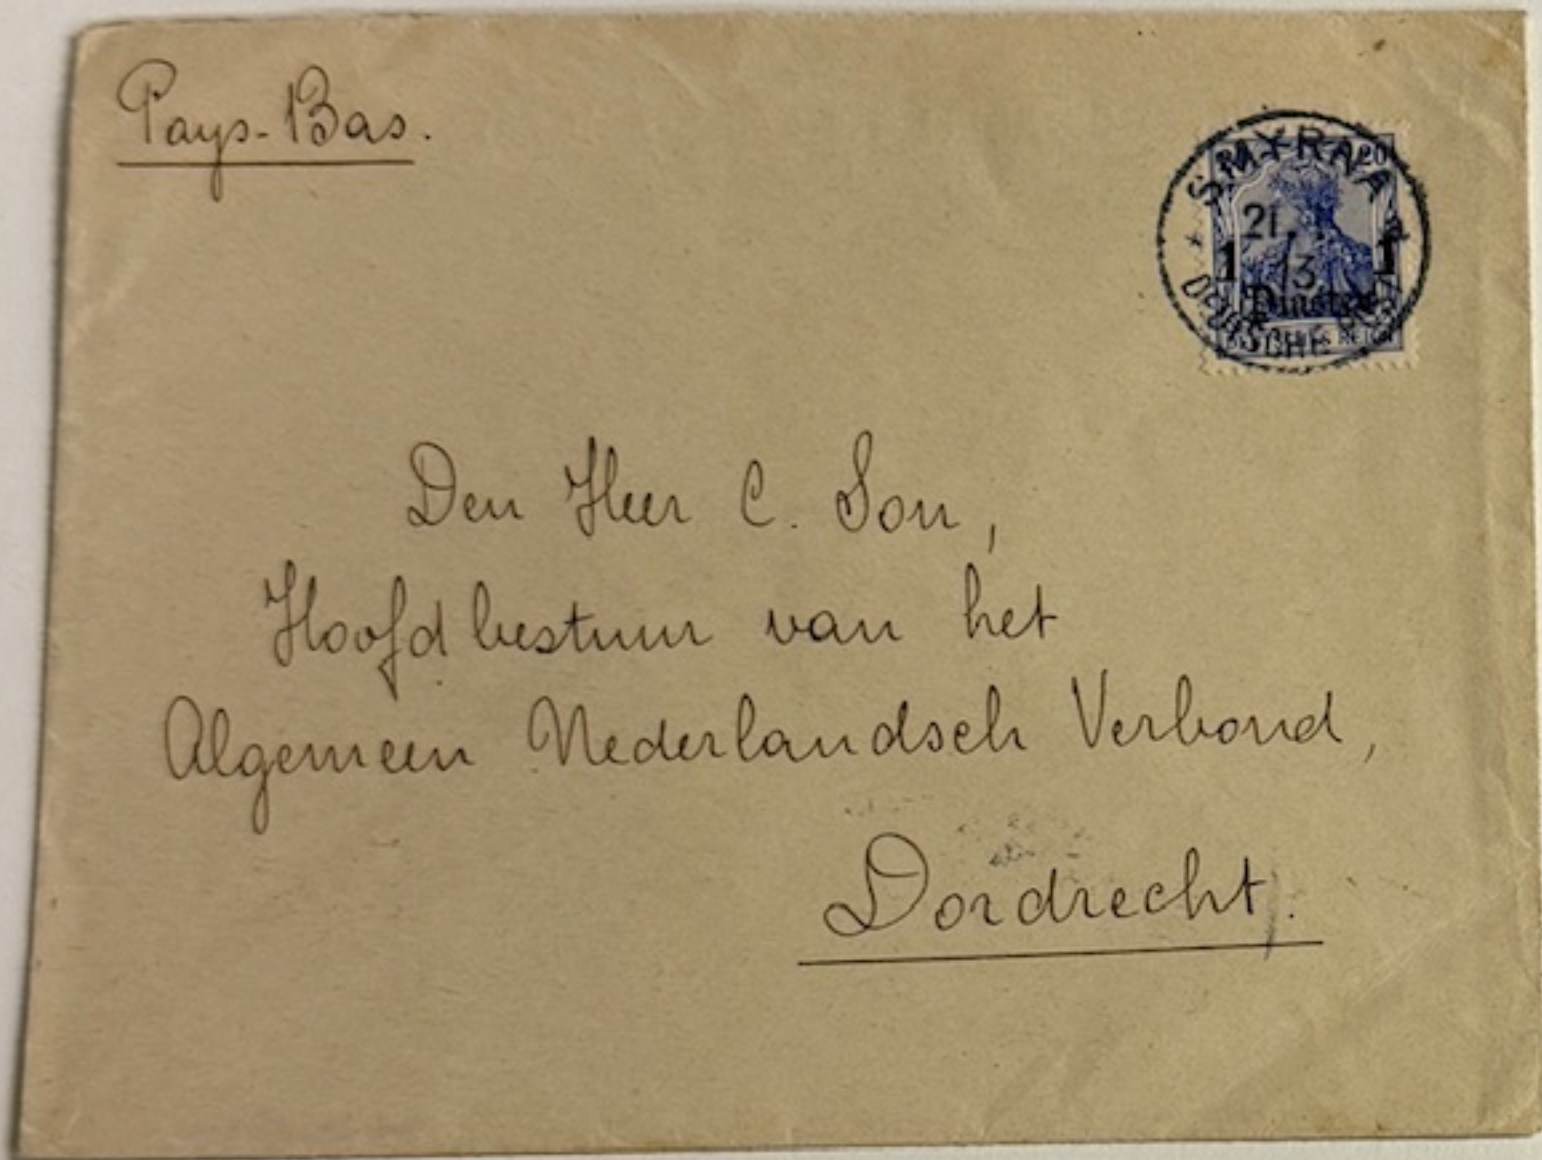 Pays-Bas.
SMYRNA
20
21.
13
1 1
Piaster
DEUTSCHE POST
Den Heer C. Son,
Hoofdbestuur van het
Algemeen Nederlandsch Verbond,
Dordrecht.